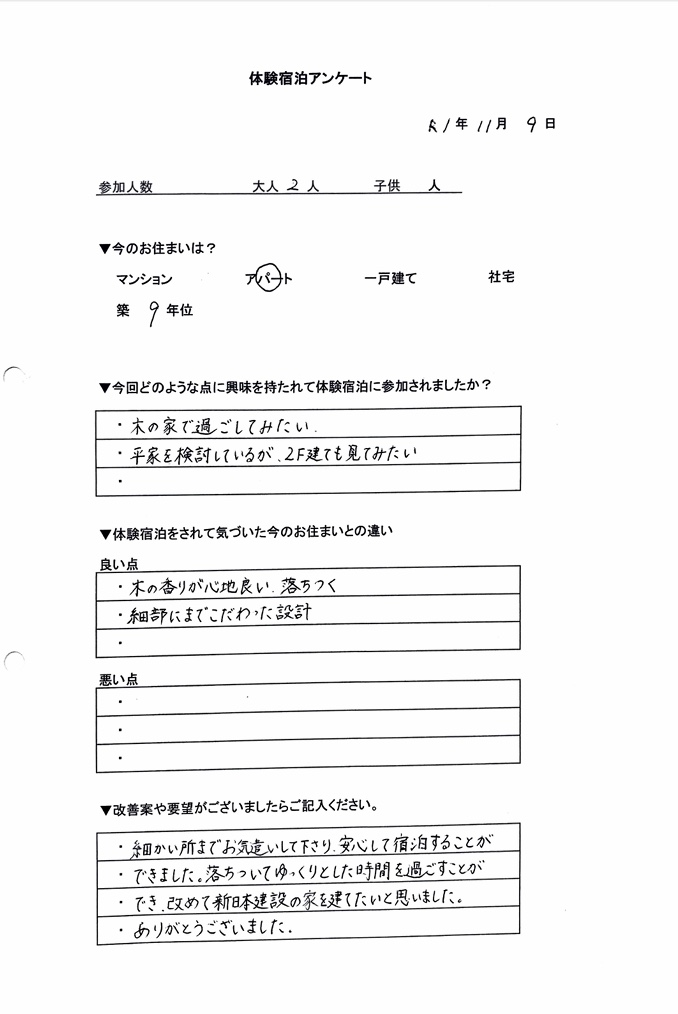 体験宿泊アンケート
R1年11月9日
参加人数 大人2人 子供 人
▼今のお住まいは？
マンション アパート 一戸建て 社宅
築 9年位
▼今回どのような点に興味を持たれて体験宿泊に参加されましたか？
・木の家で過ごしてみたい.
・平家を検討しているが、2F建ても見てみたい
・
▼体験宿泊をされて気づいた今のお住まいとの違い
良い点
・木の香りが心地良い.落ちつく
・細部にまでこだわった設計
・
悪い点
・
・
・
▼改善案や要望がございましたらご記入ください。
・細かい所までお気遣いして下さり.安心して宿泊することが
・できました。落ちついてゆっくりとした時間を過ごすことが
・でき.改めて新日本建設の家を建てたいと思いました。
・ありがとうございました.